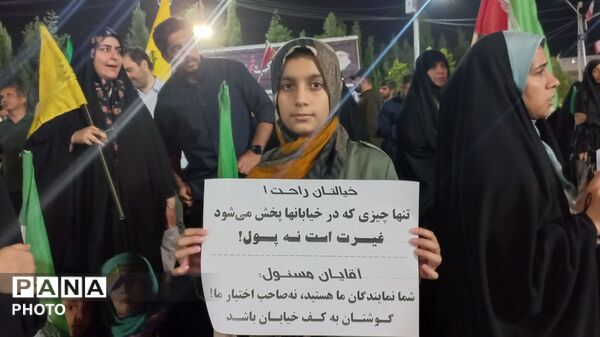 خیالتان راحت!
تنها چیزی که در خیابانها پخش می‌شود
غیرت است نه پول!
آقایان مسئول:
شما نمایندگان ما هستید، نه‌صاحب اختیار ما!
گوشتان به کف خیابان باشد
PANA
PHOTO